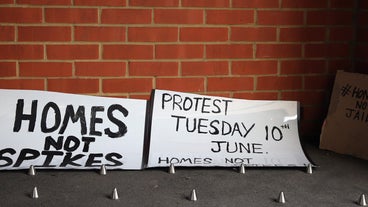 HOMES
NOT
SPIKES
PROTEST
TUESDAY 10TH
JUNE.
HOMES NOT
NOT